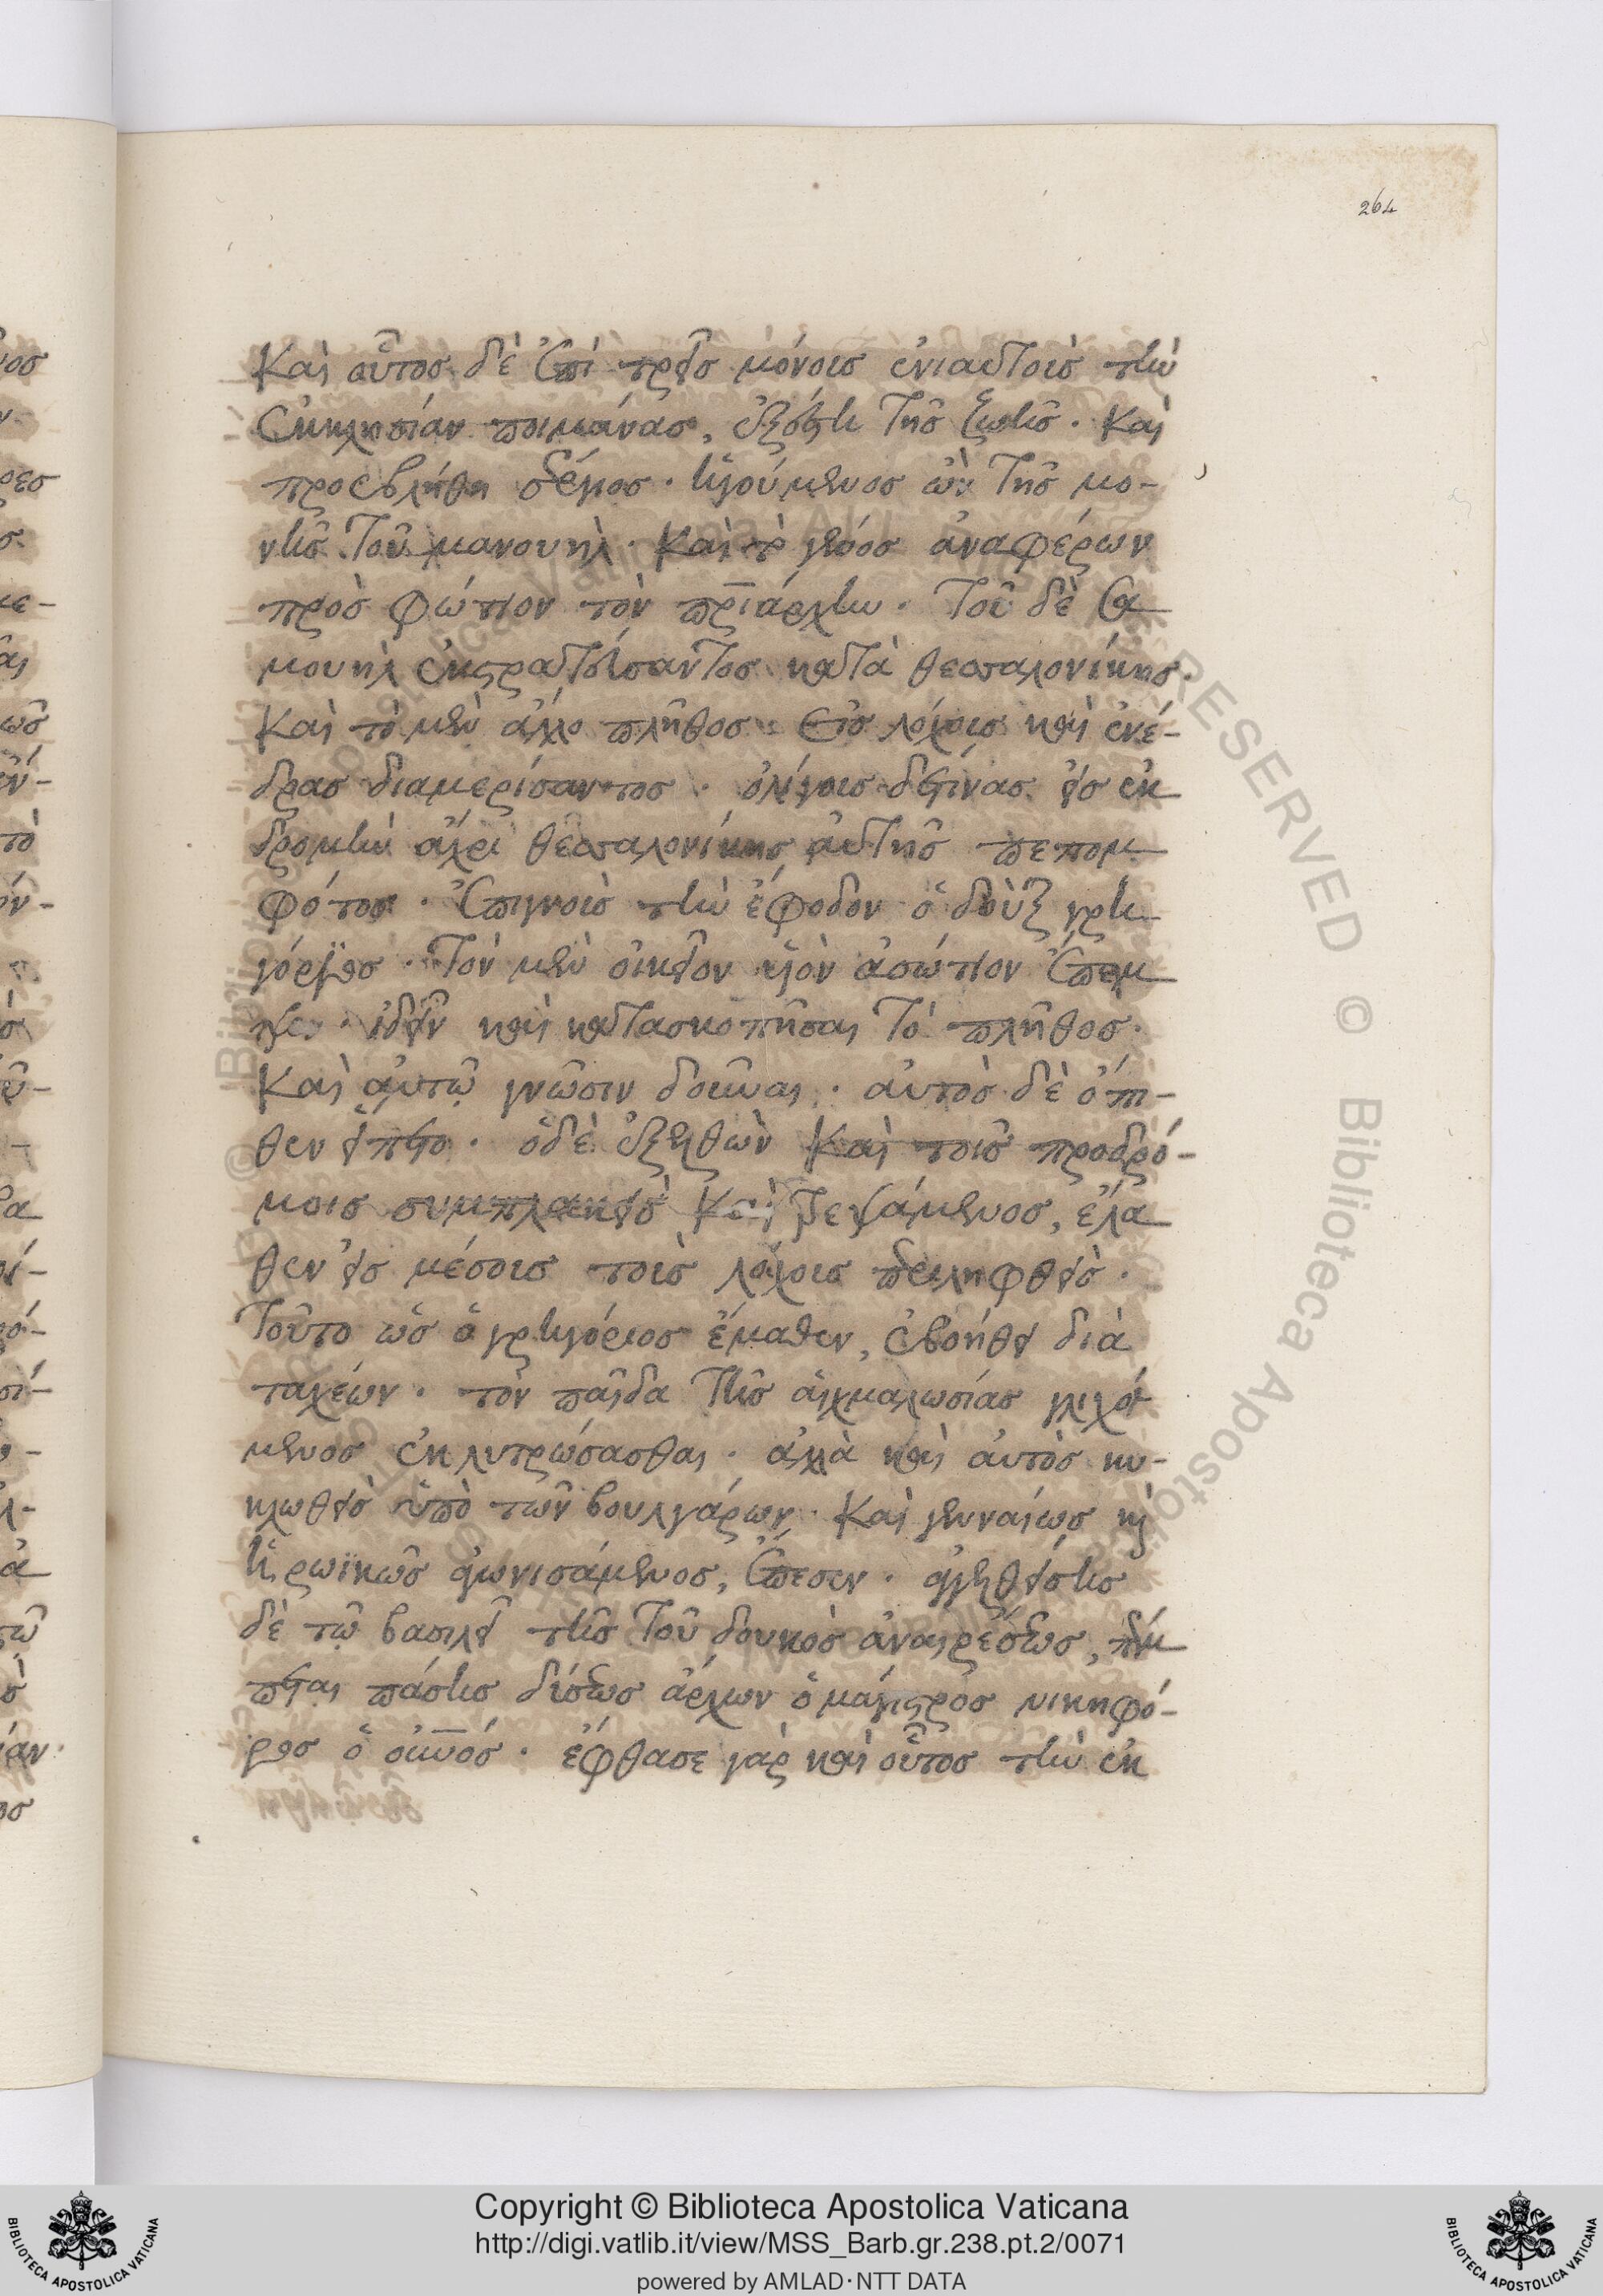 264
Καὶ οὗτος δὲ ἐπὶ τρεῖς μόνοις ἐνιαυτοῖς τὴν
ἐκκλησίαν ποιμάνας, ἐξέστη τῆς ζωῆς. Καὶ
προεβλήθη σέργιος. ἡγούμενος ὢν τῆς μο-
νῆς τοῦ μανουήλ. Καὶ τὸ γένος ἀναφέρων
πρὸς φώτιον τὸν πριάρχην. Τοῦ δὲ σα
μουὴλ ἐκστρατεύσαντος κατὰ θεσσαλονίκης.
Καὶ τὸ μὲν ἄλλο πλῆθος εἰς λόχοις καὶ ἐνέ-
δρας διαμερίσαντος. ὀλίγοις δέ τινας εἰς ἐκ
δρομὴν ἄχρι θεσσαλονίκης αὐτῆς πεπομ
φότος. ἐπιγνοὺς τὴν ἔφοδον ὁ δοὺξ γρη
γόριος. Τὸν μὲν οἰκεῖον υἱὸν ἀσώτιον ἔπεμ
ψεν. ἰδεῖν καὶ κατασκοπῆσαι τὸ πλῆθος.
Καὶ αὐτῷ γνῶσιν δοῦναι. αὐτὸς δὲ ὄπι-
θεν εἵπετο. ὁ δὲ ἐξελθὼν καὶ τοῖς προδρό-
μοις συμπλακεὶς καὶ τρεψάμενος, ἔλα
θεν εἰς μέσοις τοῖς λόχοις περιληφθείς.
Τοῦτο ὡς ὁ γρηγόριος ἔμαθεν, ἐβοήθει διὰ
ταχέων. τὸν παῖδα τῆς αἰχμαλωσίας γλιχό
μενος ἐκλυτρώσασθαι. ἀλλὰ καὶ αὐτὸς κυ-
κλωθεὶς ὑπὸ τῶν βουλγάρων. Καὶ γενναίως καὶ
ἡρωϊκῶς ἀγωνισάμενος, ἔπεσεν. ἀγγελθείσης
δὲ τῷ βασιλεῖ τῆς τοῦ δουκὸς ἀναιρέσεως, πέμ
πεται πάσης δύσεως ἄρχων ὁ μάγιστρος νικηφό-
ρος ὁ οὐνός. ἔφθασε γὰρ καὶ οὗτος τὴν ἐκ
Copyright © Biblioteca Apostolica Vaticana
http://digi.vatlib.it/view/MSS_Barb.gr.238.pt.2/0071
powered by AMLAD·NTT DATA